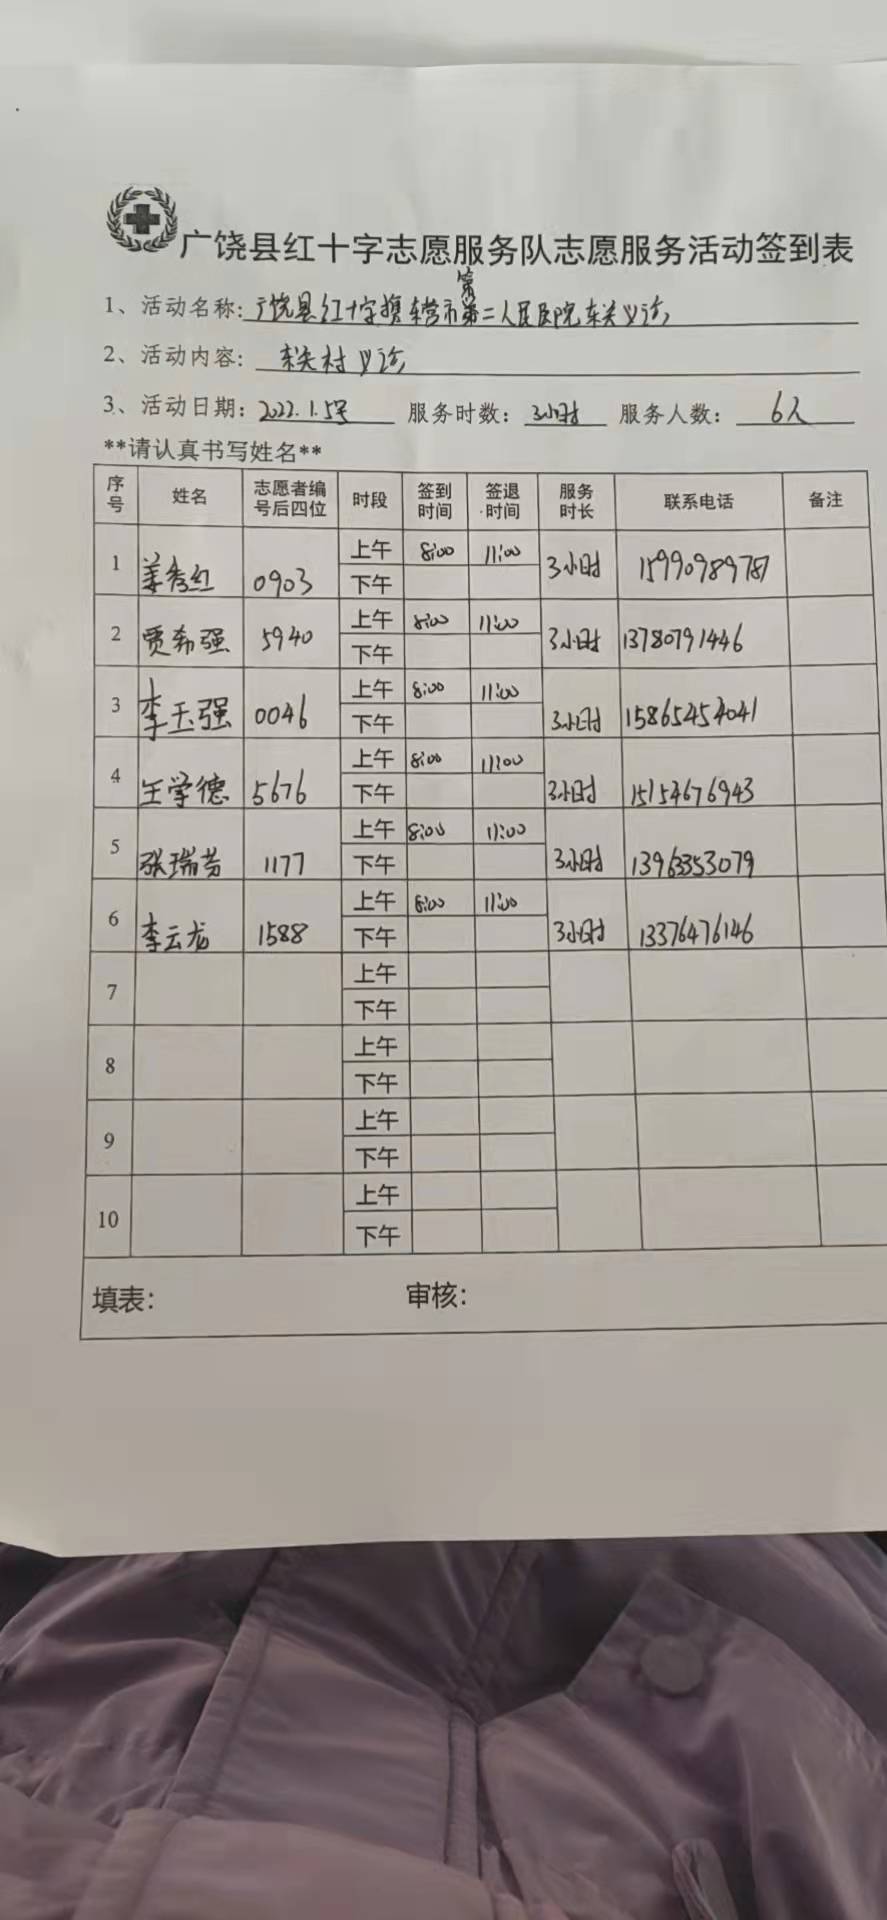 广饶县红十字志愿服务队志愿服务活动签到表
第
1、活动名称:广饶县红十字携东营市第二人民医院东关义诊
2、活动内容: 东关村义诊
3、活动日期: 2022.1.5号 服务时数: 3小时 服务人数: 6人
**请认真书写姓名**
序号 姓名 志愿者编号后四位 时段 签到时间 签退时间 服务时长 联系电话 备注
1 姜秀红 0903 上午 8:00 11:00 3小时 15990989787
下午
2 贾希强 5940 上午 8:00 11:00 3小时 13780791446
下午
3 李玉强 0046 上午 8:00 11:00 3小时 15865454041
下午
4 王学德 5676 上午 8:00 11:00 3小时 15154676943
下午
5 张瑞芳 1177 上午 8:00 11:00 3小时 13963353079
下午
6 李云龙 1588 上午 8:00 11:00 3小时 13376476146
下午
7 上午
下午
8 上午
下午
9 上午
下午
10 上午
下午
填表: 审核: